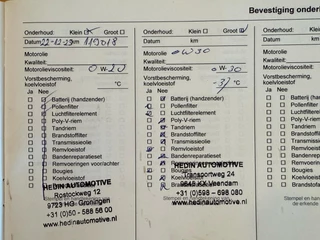 Bevestiging onderh
Onderhoud: Klein Groot
Datum 22-12-23 km 119018
Motorolie
Kwaliteit:
Motorolieviscositeit: 0 W-20
Vorstbescherming,
koelvloeistof °C
Ja Nee
Batterij (handzender)
Pollenfilter
Luchtfilterelement
Poly-V-riem
Tandriem
Brandstoffilter
Transmissieolie
Remvloeistof
Bandenreparatieset
Remvoeringen voor/achter
Bougies
Koelvloeistof
HEDIN AUTOMOTIVE
Rostockweg 12
9723 HG Groningen
+31 (0)50 - 588 88 00
www.hedinautomotive.nl
Onderhoud: Klein Groot
Datum km
Motorolie 0W30
Kwaliteit:
Motorolieviscositeit: 0 W-30
Vorstbescherming,
koelvloeistof -37 °C
Ja Nee
Batterij (handzender)
Pollenfilter
Luchtfilterelement
Poly-V-riem
Tandriem
Brandstoffilter
Transmissieolie
Remvloeistof
Bandenreparatieset
HEDIN AUTOMOTIVE
Transportweg 24
9645 KX Veendam
+31 (0)598 - 698 080
www.hedinautomotive.nl
Bougies
Koelvloeistof
Stempel en
de erkende